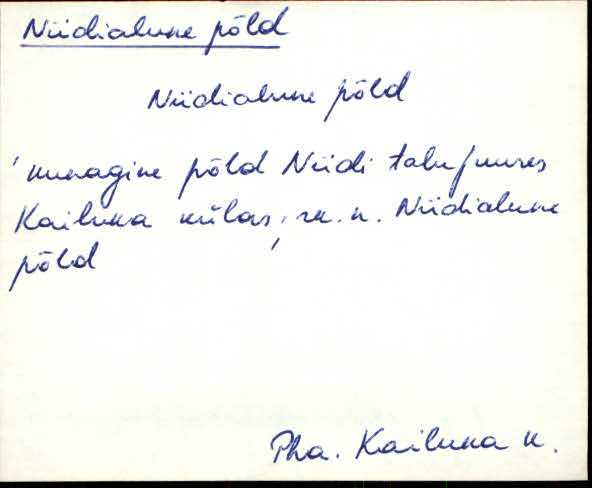 Niidialune põld
Niidialune põld
'kunagine põld Niidi talu juures
Kailuka külas, rk. n. Niidialune
põld'
Pha. Kailuka k.